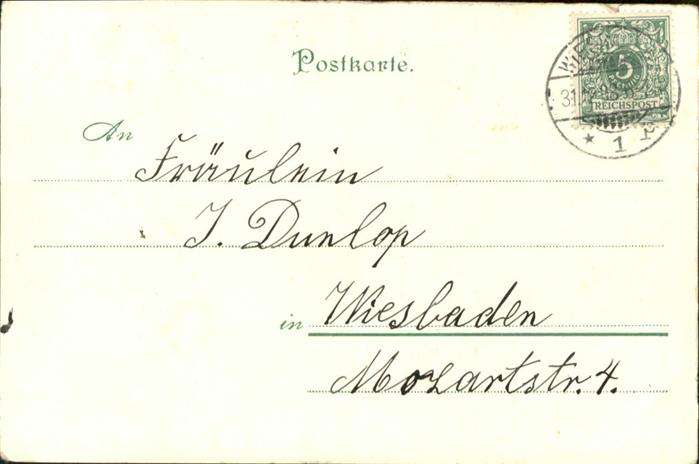 Postkarte.
5
REICHSPOST
1
An
Fräulein
J. Dunlop
in Wiesbaden
Mozartstr. 4.